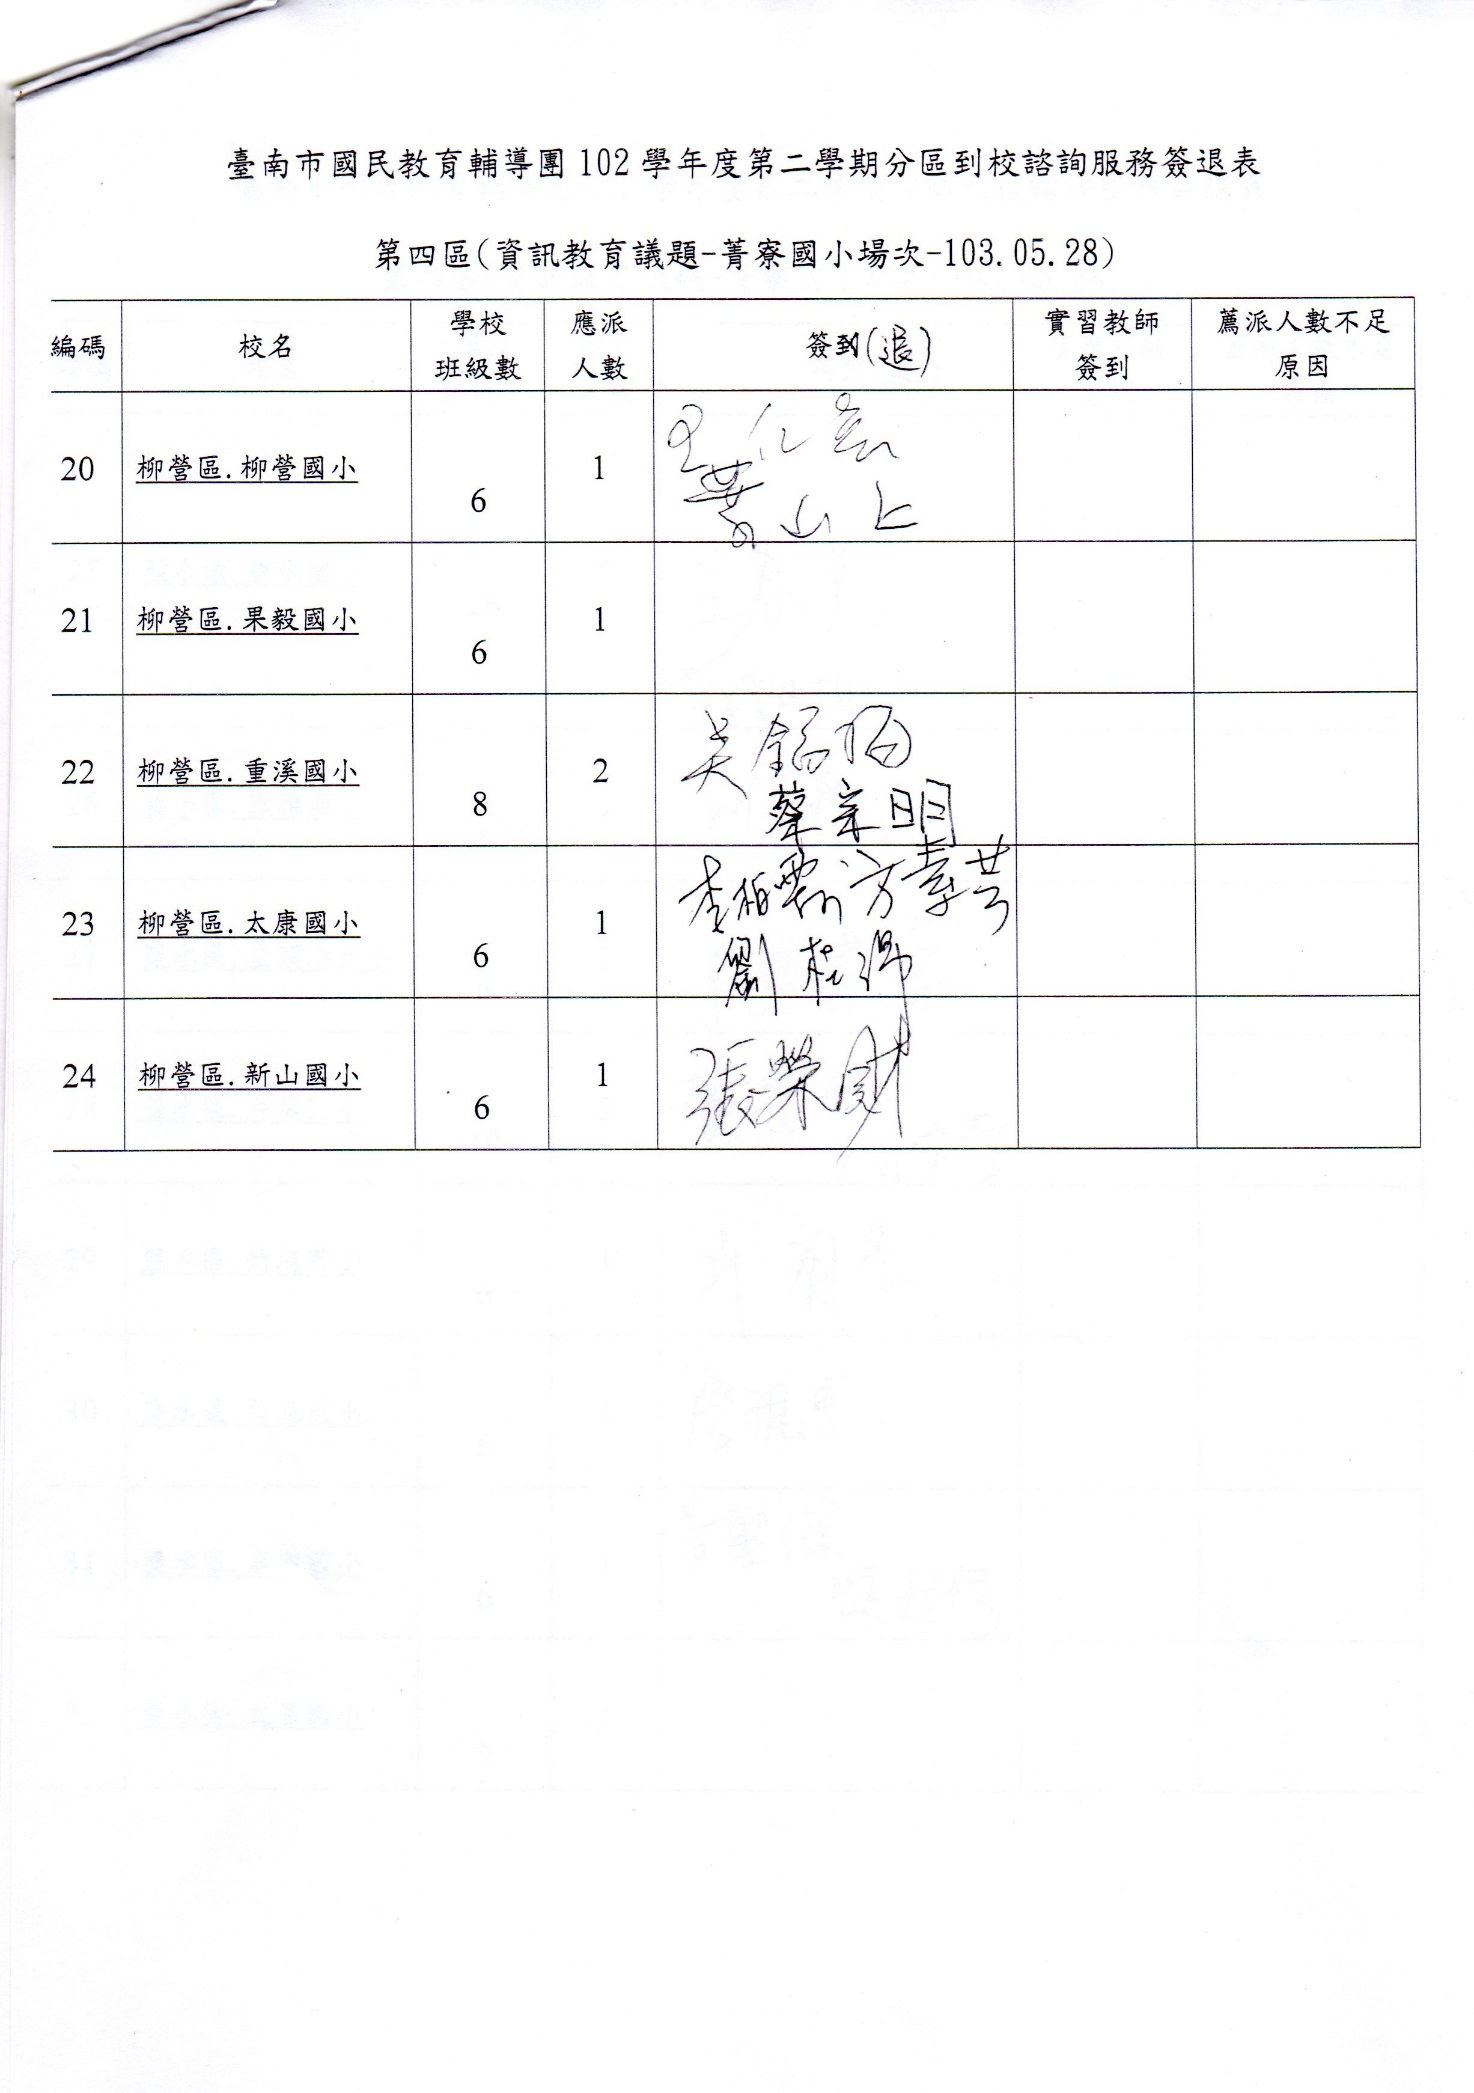 臺南市國民教育輔導團 102 學年度第二學期分區到校諮詢服務簽退表
第四區(資訊教育議題-菁寮國小場次-103.05.28)
編碼 校名 學校班級數 應派人數 簽到(退) 實習教師簽到 薦派人數不足原因
20 柳營區.柳營國小 6 1
葉山上
21 柳營區.果毅國小 6 1
22 柳營區.重溪國小 8 2 吳
蔡宗明
23 柳營區.太康國小 6 1 李柏 方韋
劉桂
24 柳營區.新山國小 6 1 張榮財